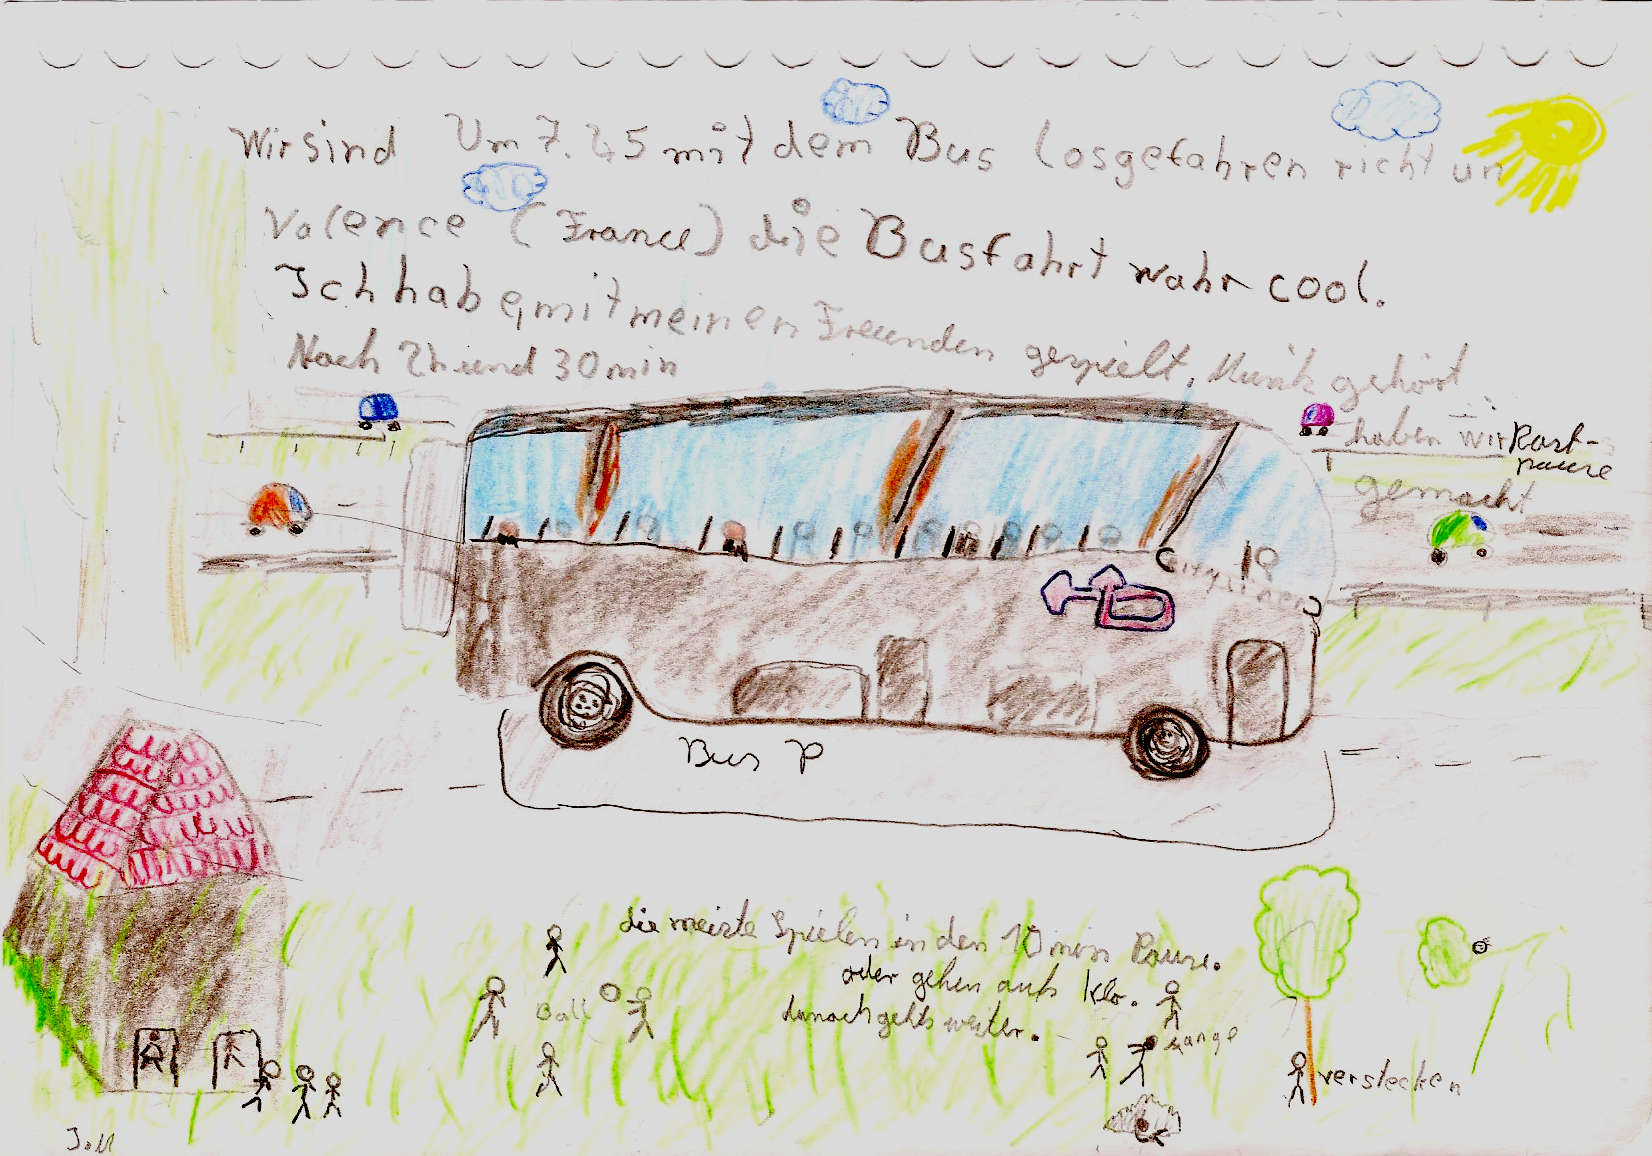 Wir sind Um 7.45 mit dem Bus losgefahren richtun
Valence (France) die Busfahrt wahr cool.
Ich habe mit meinen Freunden gespielt, Musik gehört
Nach 2h und 30 min haben wir Rast-
pause
gemacht
Bus P
die meiste Spielen in den 10 min Pause.
oder gehen aufs Klo.
danach gehts weiter.
Ball
Fange
verstecken
J.M